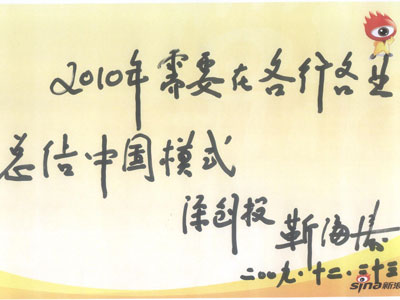 2010年需要在各行各业
总结中国模式
深创投 靳海涛
二〇〇九·十二·二十三
sina新浪